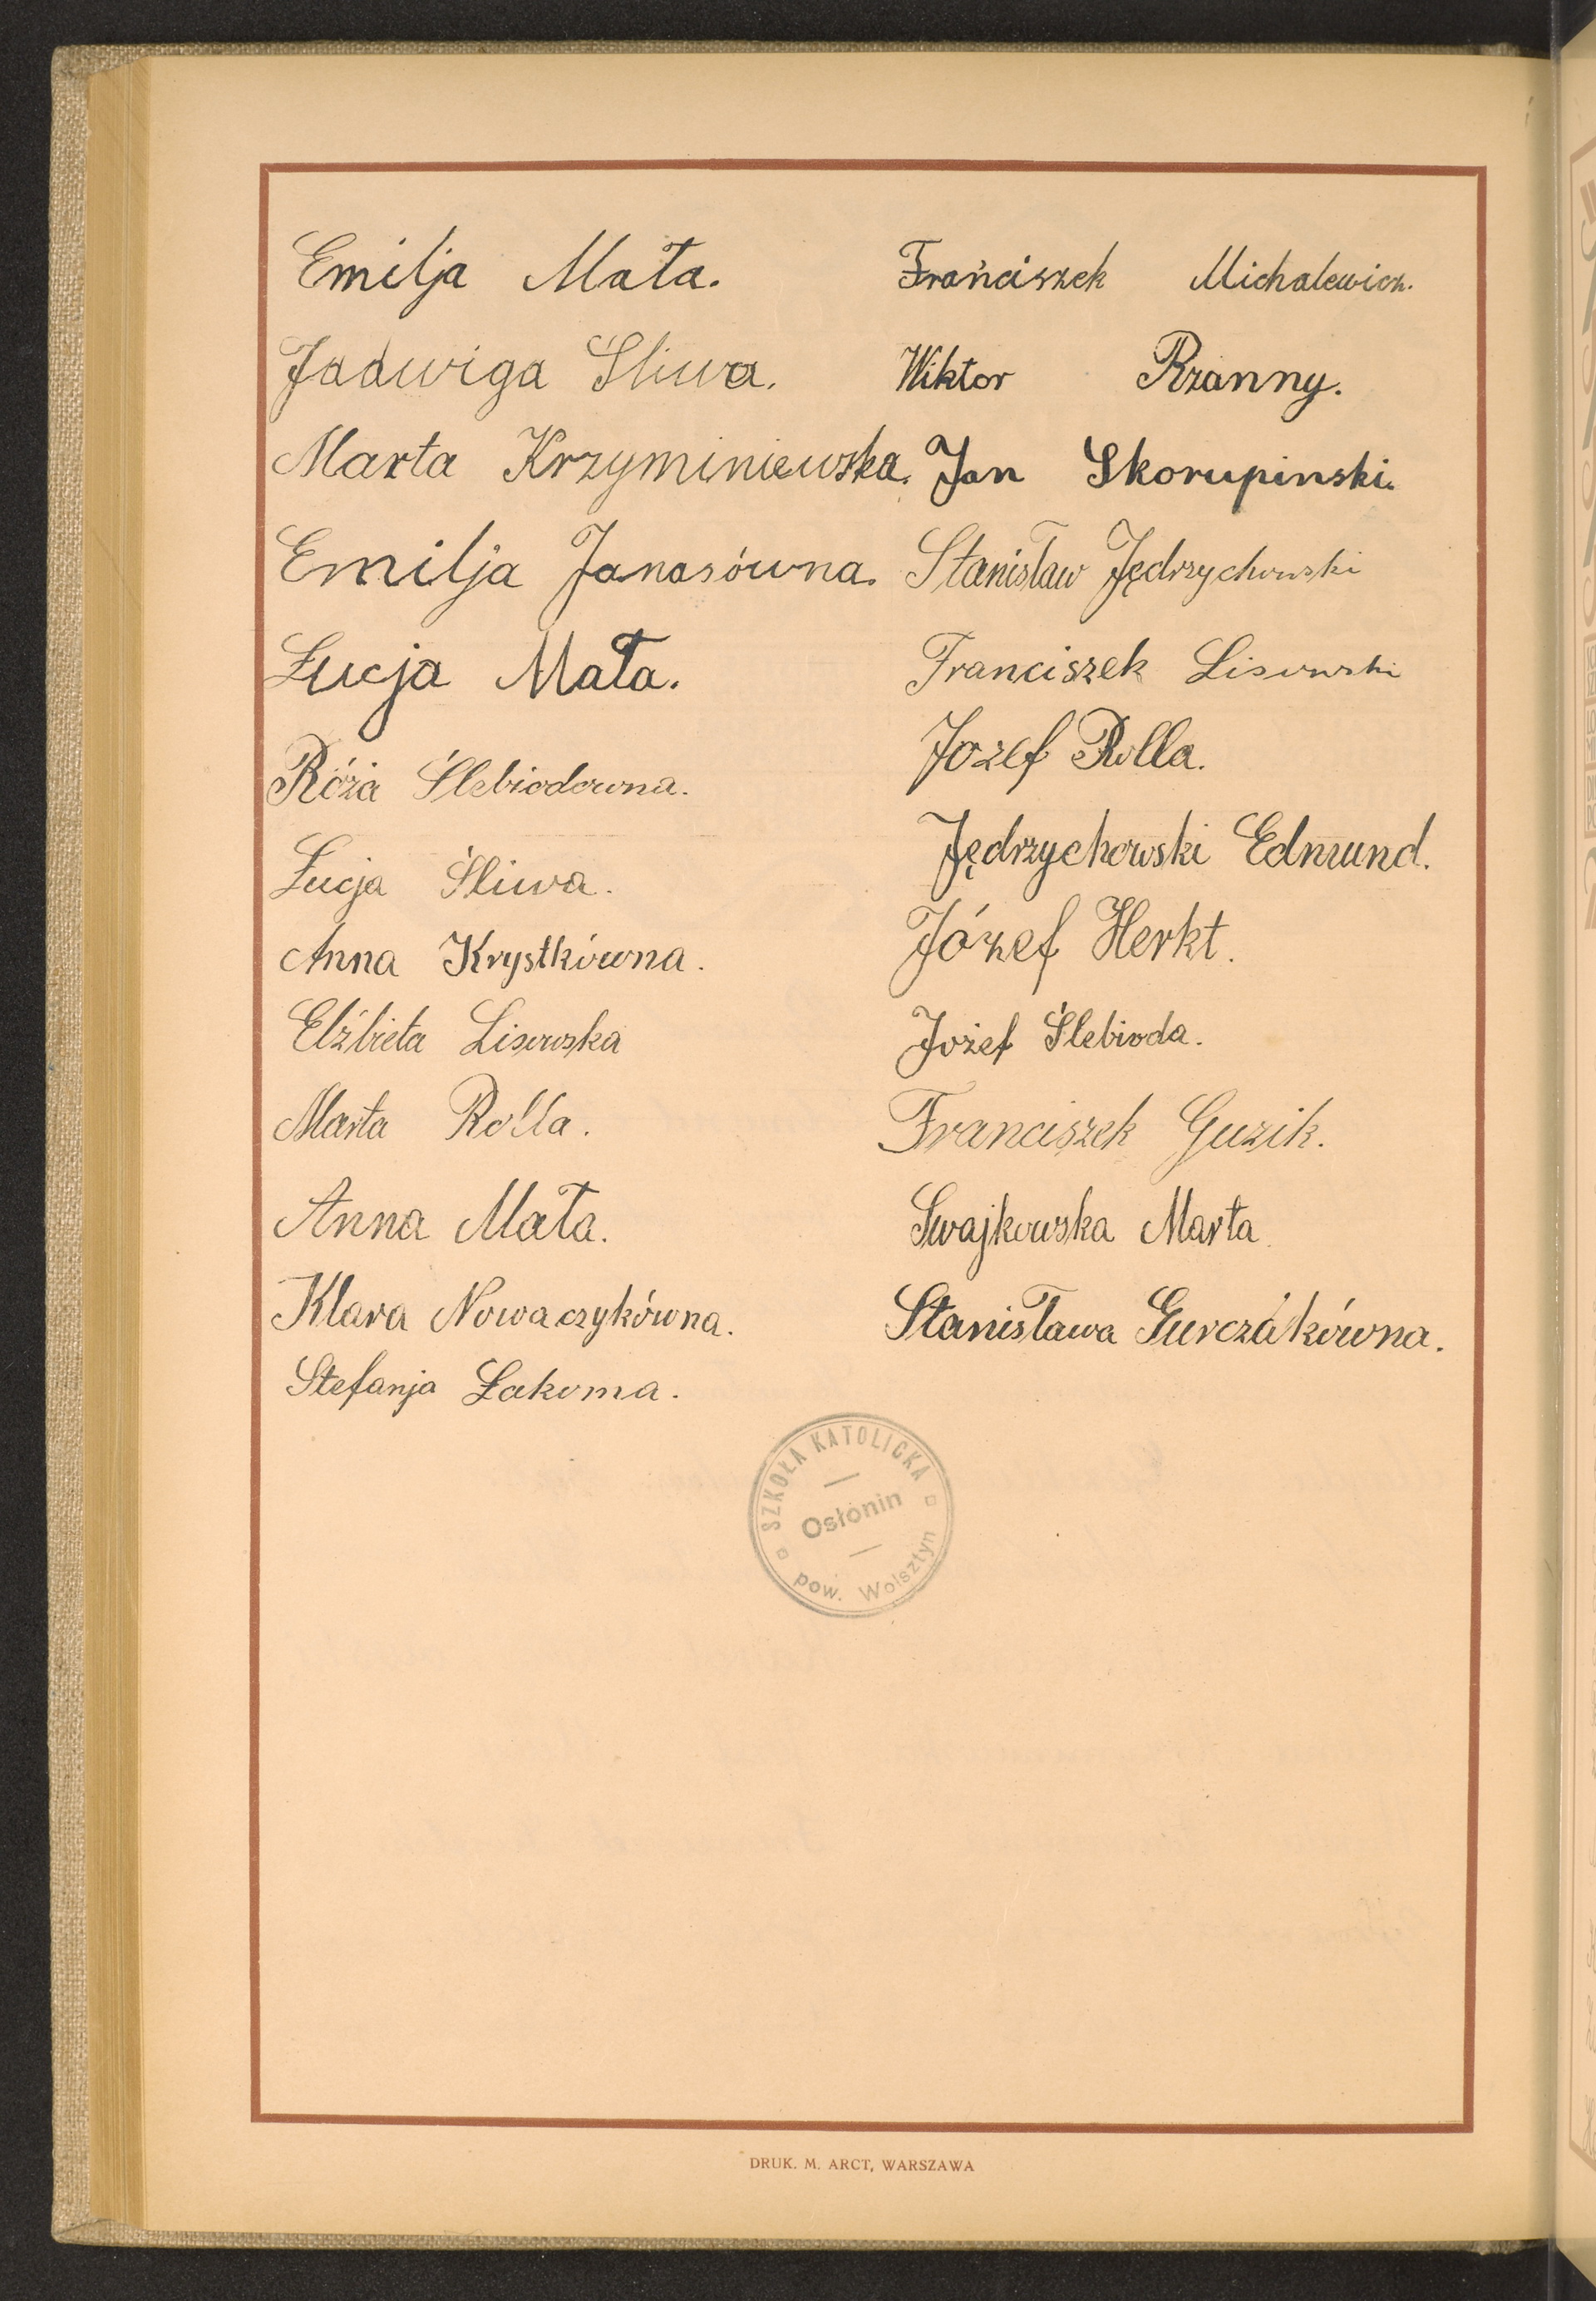 Emilja Mała.
Jadwiga Śliwa.
Marta Krzyminiewska.
Emilja Janasówna.
Łucja Mała.
Róża Ślebiodowna.
Łucja Śliwa.
Anna Krystkówna.
Elżbieta Lisowska
Marta Rolla.
Anna Mała.
Klara Nowaczykówna.
Stefanja Łakoma.
Franciszek Michalewicz.
Wiktor Rzanny.
Jan Skorupinski.
Stanisław Jędrzychowski
Franciszek Lisowski
Jozef Rolla.
Jędrzychowski Edmund.
Józef Herkt.
Jożef Ślebioda.
Franciszek Guzik.
Swajkowska Marta
Stanisława Gurczákówna.
SZKOŁA KATOLICKA
Osłonin
pow. Wolsztyn
DRUK. M. ARCT, WARSZAWA